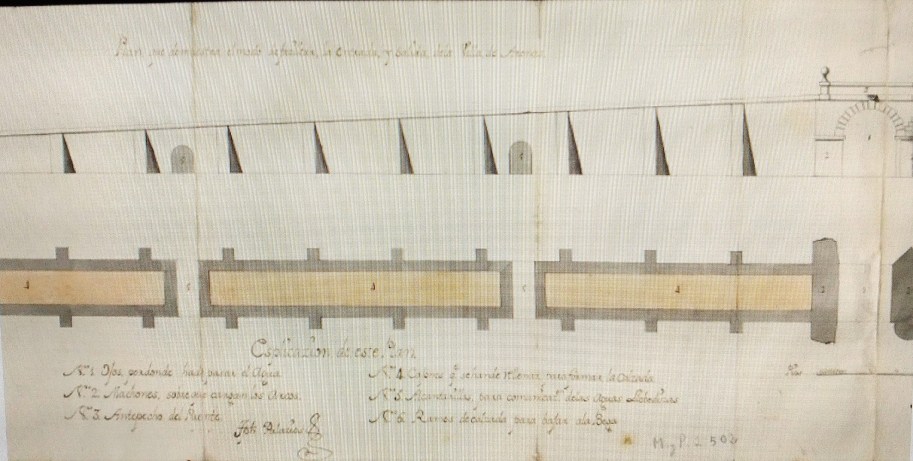 Plan que demuestra el modo de facilitar, la entrada, y salida dela Villa de
Esplicacion de este Plan
Nº. 1. Ojos, pordonde ha de pasar el Agua
Nº. 2. Machones, sobre que cargan los Arcos.
Nº. 3. Antepecho del Puente.
Nº. 4. Cajones q. se han de rellenar, para formar la Calzada
Nº. 5. Alcantarillas, para comunicaⁿ. de las Aguas
Nº. 6. Ramos de calzada para bajar ala Bega
Palacios
M. y P. 2502